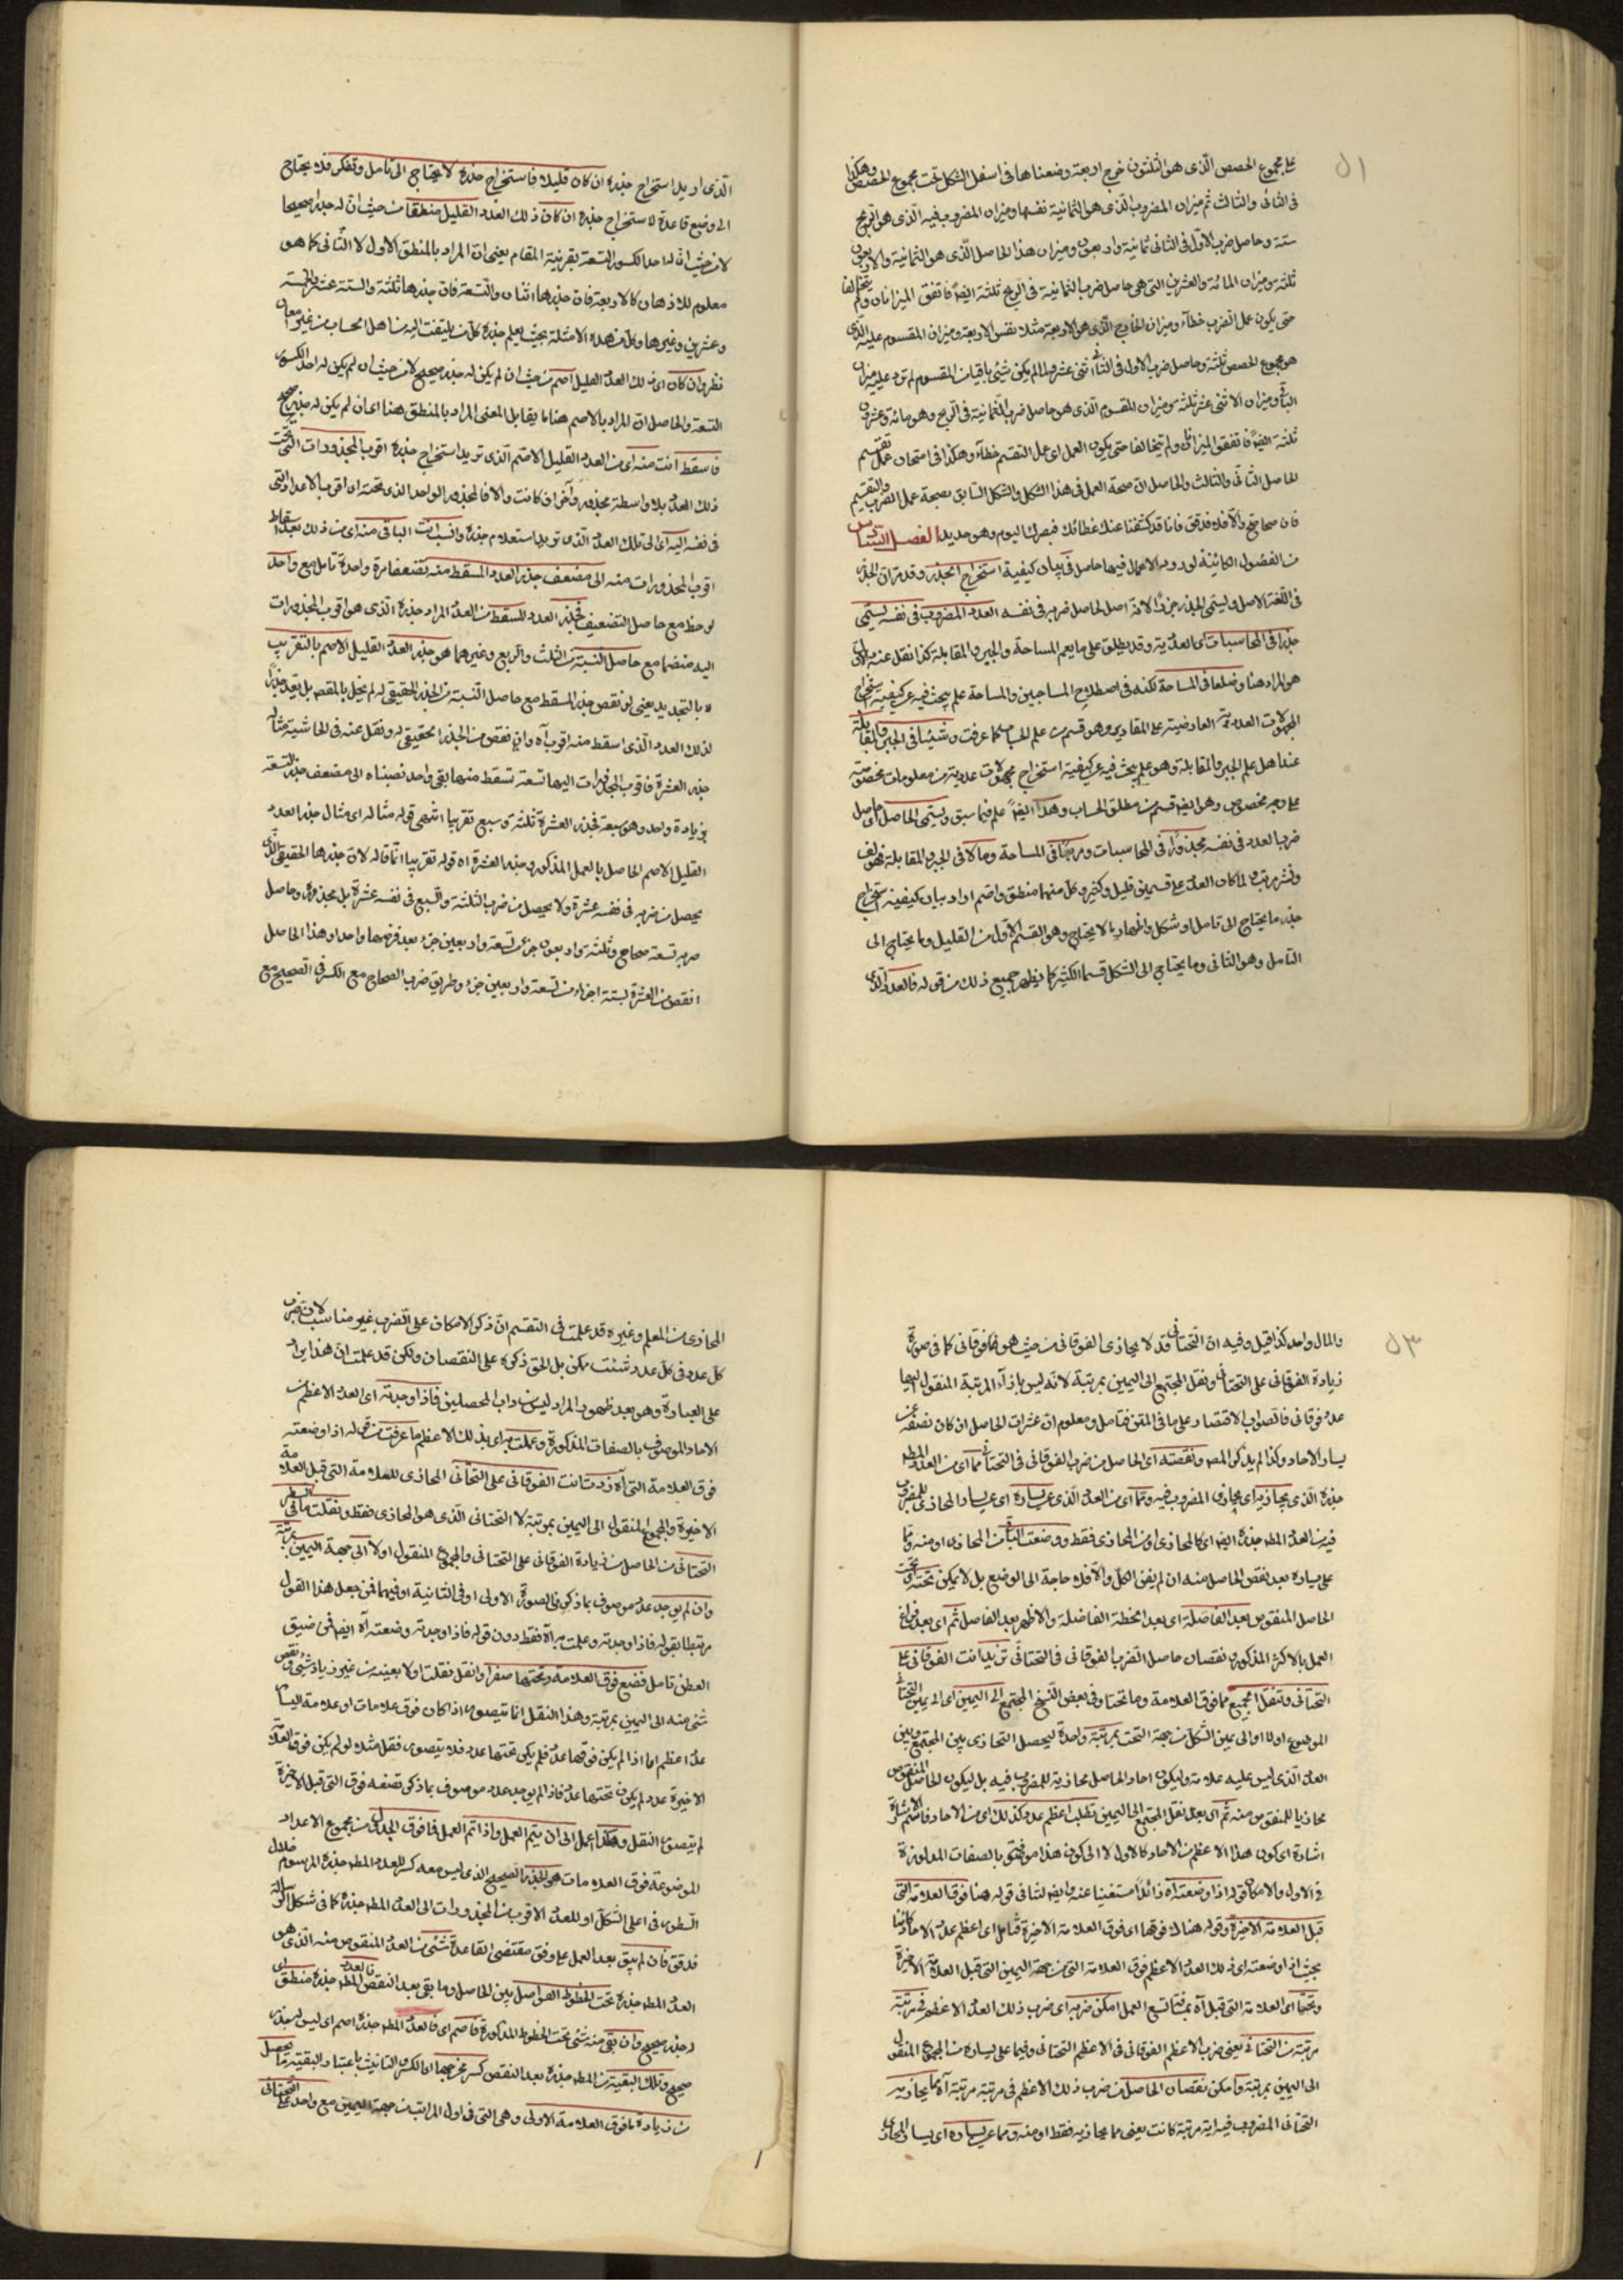 ٥١
على مجموع الحصص الّذى هو الثلثون خرج اربعة وضعناها فى اسفل الشكل تحت مجموع الحصص وهكذا
فى الثانى والثالث ثم ميزان المضروب الّذى هو الثمانية نفسها وميزان المضروب فيه الّذى هو الربح
ستة وحاصل ضرب الاوّل فى الثانى ثمانية واربعون وميزان هذا الحاصل الّذى هو الثمانية والاربعون
ثلثة وميزان المائة والعشرين التى هى حاصل ضرب الثمانية فى الربح ثلثة ايضاً فاتفق الميزانان ولم يتخالفا
حتى يكون عمل الضرب خطآء وميزان الخارج الّذى هو الاربعة مثلا نفس الاربعة وميزان المقسوم عليه الّذى
هو مجموع الحصص ثلثة وحاصل ضرب الاول فى الثانى اثنى عشر ولما لم يكن شئ باقيا من المقسوم لم نزد عليه ميزان
الباقى وميزان الاثنى عشر ثلثة وميزان المقسوم الّذى هو حاصل ضرب الثمانية فى الربح وهو مائة وعشرون
ثلثة ايضاً فاتفق الميزانان ولم يتخالفا حتى يكون العمل اى عمل التقسيم خطآء وهكذا فى امتحان عمل تقسيم
الحاصل الثانى والثالث والحاصل ان صحة العمل فى هذا الشكل والشكل السابق بصحة عمل الضرب والتقسيم
فان صحا صح والّا فلا فدقق فانا قد كشفنا عنك غطائك فبصرك اليوم وهو حديد الفصل السّادس
من الفصول الكائنة لورود الاعمال فيها حاصل فى بيان كيفية استخراج الجذر وقد مرّ ان الجذر
فى اللغة الاصل ويسمى الجذر جذراً لانه اصل لحاصل ضربه فى نفسه العدد المضروب فى نفسه يسمى
جذرا فى المحاسبات اى العددية وقد يطلق على ما يعم المساحة والجبر والمقابلة كذا نقل عنه والاوّل
هو المراد هنا وضلعا فى المساحة لكنه فى اصطلاح المساحين والمساحة علم يبحث فيه عن كيفية استخراج
المجهولات العددية العارضية على المقادير وهو قسم من علم الحساب كما عرفت وشيئا فى الجبر والمقابلة
عند اهل علم الجبر والمقابلة وهو علم يبحث فيه عن كيفية استخراج مجهولات عددية من معلومات مخصوصة
على وجه مخصوص وهو ايضا قسم من مطلق الحساب وهذا ايضاً علم فيما سبق ويسمى الحاصل اى حاصل
ضرب العدد فى نفسه مجذوراً فى المحاسبات ومربعاً فى المساحة ومالا فى الجبر والمقابلة فهو لف
ونشر مرتب ولما كان العدد على قسمين قليل وكثير وكل منهما منطق واصم اراد بيان كيفية استخراج
جذر ما يحتاج الى تامل او شكل والى ما لا يحتاج وهو القسم الاوّل من القليل وما يحتاج الى
التأمل وهو الثانى وما يحتاج الى الشكل قسما الكثير كما يظهر جميع ذلك من قوله فالعدد الّذى
الّذى اريد استخراج جذره ان كان قليلا فاستخراج جذره لا يحتاج الى تامل وتفكر فلا يحتاج
الى وضع قاعدة لاستخراج جذره ان كان ذلك العدد القليل منطقا من حيث ان له جذرا صحيحا
لا من حيث ان له احد الكسور التسعة بقرينة المقام يعنى ان المراد بالمنطق الاول لا الثانى كما هو
معلوم للاذهان كالاربعة فان جذرها اثنان والتسعة فان جذرها ثلثة والستة عشر والخمسة
وعشرين وغيرها وكل من هذه الامثلة بحيث يعلم جذره كل من يلتفت اليه من اهل الحساب من غير امعان
نظر وان كان اى ذلك العدد القليل اصم من حيث ان لم يكن له جذر صحيح لا من حيث ان لم يكن له احد الكسور
التسعة والحاصل ان المراد بالاصم هنا ما يقابل المعنى المراد بالمنطق هنا اى ان لم يكن له جذر صحيح
فاسقط انت منه اى من العدد القليل الاصم الّذى تريد استخراج جذره اقرب المجذورات التى تحت
ذلك العدد بلا واسطة مجذور آخر ان كانت والّا فالمجذور الواحد الذى تحته اى اقرب الاعداد التى
فى نفسه اليه اى الى تلك العدد الّذى تريد استعلام جذره وانسب انت الباقى منه اى من ذلك بعد اسقاط
اقرب المجذورات منه الى مضعف جذر العدد المسقط منه تضعفا مرة واحدة تامل مع واحد
لوحظ مع حاصل التضعيف فجذر العدد المسقط من العدد المراد جذره الّذى هو اقرب المجذورات
اليه منضما مع حاصل النسبة من الثلث والربع وغيرهما هو جذر العدد القليل الاصم بالتقريب
لا بالتحديد يعنى لو نقص جذر المسقط مع حاصل النسبة من الجذر الحقيقى له لم يخل بالمقصد بل يعد جذرا
لذلك العدد الّذى اسقط منه اقرب آه وان نقص من الجذر الحقيقى له ونقل عنه فى الحاشية مثاله
جذر العشرة فاقرب المجذورات اليها تسعة تسقط منها يبقى واحد نصبناه الى مضعف جذر التسعة
بزيادة واحد وهو سبعة فجذر العشرة ثلثة وسبع تقريبا انتهى قوله مثاله اى مثال جذر العدد
القليل الاصم الحاصل بالعمل المذكور جذر العشرة اه قوله تقريبا انما قاله لان جذرها الحقيقى الّذى
يحصل من ضربه فى نفسه عشرة ولا يحصل من ضرب الثلثة والسبع فى نفسه عشرة بل مجذوره وحاصل
ضربه تسعة صحاح وثلثة واربعون جزء من تسعة واربعين جزء بعد فرضها واحدا وهذا الحاصل
انقص من العشرة بستة اجزاء من تسعة واربعين جزء وطريق ضرب الصحاح مع الكسر فى الصحيح مع
٥٣
والمال واحد كذا قيل وفيه ان التحتانى قد لا يحاذى الفوقانى من حيث هو فوقانى كما فى صورة
زيادة الفوقانى على التحتانى ونقل المجتمع الى اليمين بمرتبة لانه ليس بازآء المرتبة المنقول اليها
عدد فوقانى فالصواب الاقتصار على ما فى المتن فتامل ومعلوم ان عشرات الحاصل ان كان نصفه عن
يسار الاحاد وكذا لم يذكر المص ونقصته اى الحاصل من ضرب الفوقانى فى التحتانى مما اى من العدد المطلوب
جذره الّذى يحاذيه اى يحاذى المضروب فيه ومما اى من العدد الّذى عن يساره اى عن يسار المحاذى للمضروب
فيه من العدد المط جذره ايضا اى كالمحاذى او من المحاذى فقط ووضعت الباقى من المحاذى او منه ومما
على يساره بعد نقص الحاصل منه ان لم يفن الكل والّا فلا حاجة الى الوضع بل لا يمكن تحته اى تحت
الحاصل المنقوص بعد الفاصلة اى بعد الخطة الفاصلة والاظهر بعد الفاصل ثم اى بعد فراغ
العمل بالاكثر المذكور ونقصان حاصل الضرب الفوقانى فى التحتانى تزيد انت الفوقانى على
التحتانى وتنقل الجميع مما فوق العلامة وما تحتها وفى بعض النسخ المجتمع الى اليمين اى الى يمين التحتانى
الموضوع اولا او الى يمين الشكل من جهة التحت بمرتبة واحدة ليحصل التحاذى بين المجتمع وبين
العدد الّذى ليس عليه علامة وليكون احاد الحاصل محاذية للمضروب فيه بل ليكون الحاصل المنقوص
محاذيا للمنقوص منه ثم اى بعد نقل المجتمع الى اليمين تطلب اعظم عدد كذلك اى من الاحاد فاسم الاشارة
اشارة الى كون هذا الاعظم من الاحاد كالاول لا الى كون هذا موصوفى بالصفات المذكورة
فى الاول والا لكان قوله اذا وضعته اه زائداً مستغنيا عنه وايضا لتنافى قوله هنا فوق العلامة التى
قبل العلامة الاخيرة وقوله هناك فوقها اى فوق العلامة الاخيرة فتامل اى اعظم عدد الاحاد كائنا
بحيث اذا وضعته اى ذلك العدد الاعظم فوق العلامة التى من جهة اليمين التى قبل العلامة الاخيرة
وتحتها اى العلامة التى قبل آه بمثل تسع العمل امكن ضربه اى ضرب ذلك العدد الاعظم فى مرتبة
مرتبة من التحتانى يعنى ضرب الاعظم الفوقانى فى الاعظم التحتانى وفيما على يساره من المجموع المنقول
الى اليمين بمرتبة وامكن نقصان الحاصل من ضرب ذلك الاعظم فى مرتبة مرتبة آه مما يحاذيه
التحتانى المضروب فيه اية مرتبة كانت يعنى مما يحاذيه فقط او منه ومما عن يساره اى يسار المحاذى
المحاذى من المعلم وغيره قد علمت فى التقسيم ان ذكر الامكان على الضرب غير مناسب لان ضرب
كل عدد فى كل عدد شئت ممكن بل الحق ذكره على النقصان ولكن قد علمت ان هذا ايراد
على العبارة وهو بعد ظهور المراد ليس من داب المحصلين فاذا وجدته اى العدد الاعظم من
الاحاد الموصوف بالصفات المذكورة وعملت به اى بذلك الاعظم ما عرفت من قوله اذا وضعته
فوق العلامة التى آه زدت انت الفوقانى على التحتانى المحاذى للعلامة التى قبل العلامة
الاخيرة والمجموع المنقول الى اليمين بمرتبة لا التحتانى الّذى هو المحاذى فقط ونقلت ما فى السطر
التحتانى من الحاصل من زيادة الفوقانى على التحتانى والمجموع المنقول اولا الى جهة اليمين بمرتبة
وان لم يوجد عدد موصوف بما ذكر فى الصورة الاولى او فى الثانية او فيهما فمن جعل هذا القول
مرتبطا بقوله فاذا وجدته وعملت به آه فقط دون قوله فاذا وجدته وضعته آه ايضا فمن ضيق
العطن تامل فضع فوق العلامة وتحتها صفرا وانقل نقلت اولا بعينه من غير زيادة شئ ونقص
شئ منه الى اليمين بمرتبة وهذا النقل انما يتصور اذا كان فوق علامات او علامة اليسار
عدد اعظم اما اذا لم يكن فوقها عدد فلم يكن تحتها عدد فلا يتصور نقل مثلا لو لم يكن فوق العلامة
الاخيرة عدد لم يكن تحتها عدد فاذا لم يوجد عدد موصوف بما ذكر تضعه فوق التى قبل الاخيرة
لم يتصور النقل وهكذا اعمل الى ان يتم العمل واذا تم العمل فما فوق الجدول من مجموع الاعداد
الموضوعة فوق العلامات هو الجذر الصحيح الذى ليس معه كسر للعدد المط جذره المرسوم خلال
السطور فى اعلى الشكل او للعدد الاقرب من المجذورات الى العدد المط جذره كما فى شكل الرسالة
فدقق فان لم يبق بعد العمل على وفق مقتضى القاعدة شئ من العدد المنقوص منه الّذى هو
العدد المط جذره تحت الخطوط الفواصل بين الحاصل وما بقى بعد النقص فالعدد المط جذره منطق اى
له جذر صحيح وان بقى منه شئ تحت الخطوط المذكورة فاصم اى فالعدد المط جذره اصم اى ليس له جذر
صحيح وتلك البقية من المط جذره بعد النقص كسر مخرجها اى الكسر والتانيث باعتبار البقية ما يحصل
من زيادة ما فوق العلامة الاولى وهى التى فى اول المراتب من جهة اليمين مع واحد على التحتانى